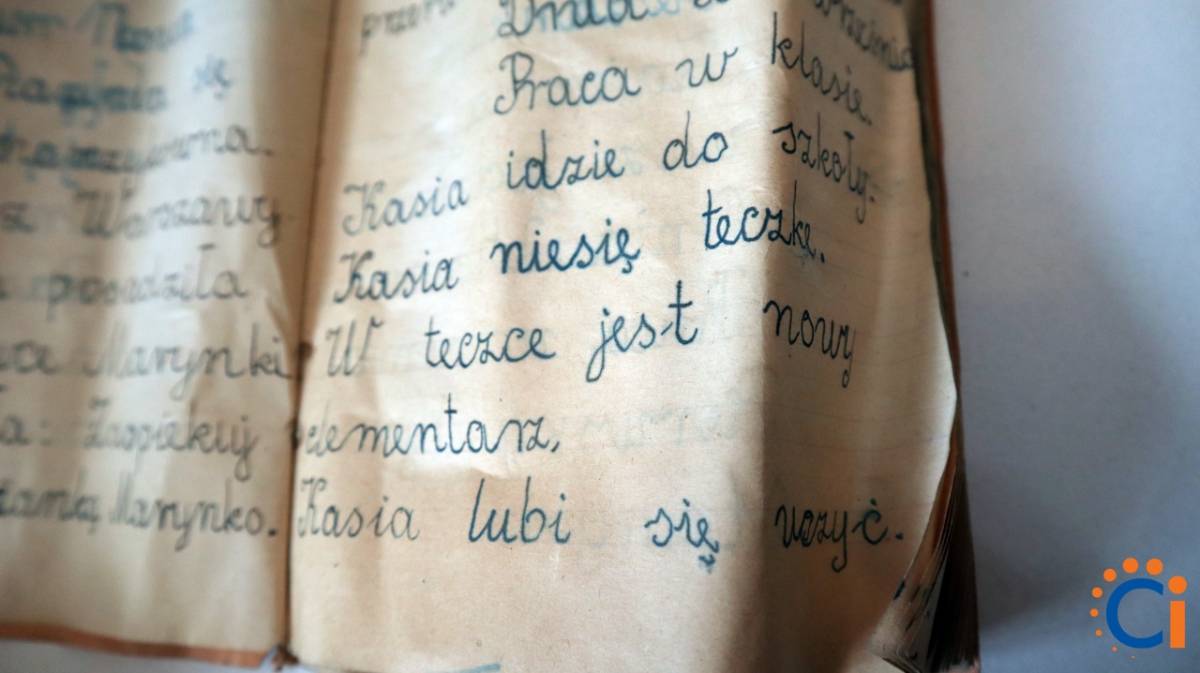 się
z Warszawy
posadziła
Marynki
Zaopiekuj
Marynko.
Dnia
Praca w klasie.
Kasia idzie do szkoły.
Kasia niesię teczkę.
W teczce jest nowy
elementarz,
Kasia lubi się uczyć.
Ci